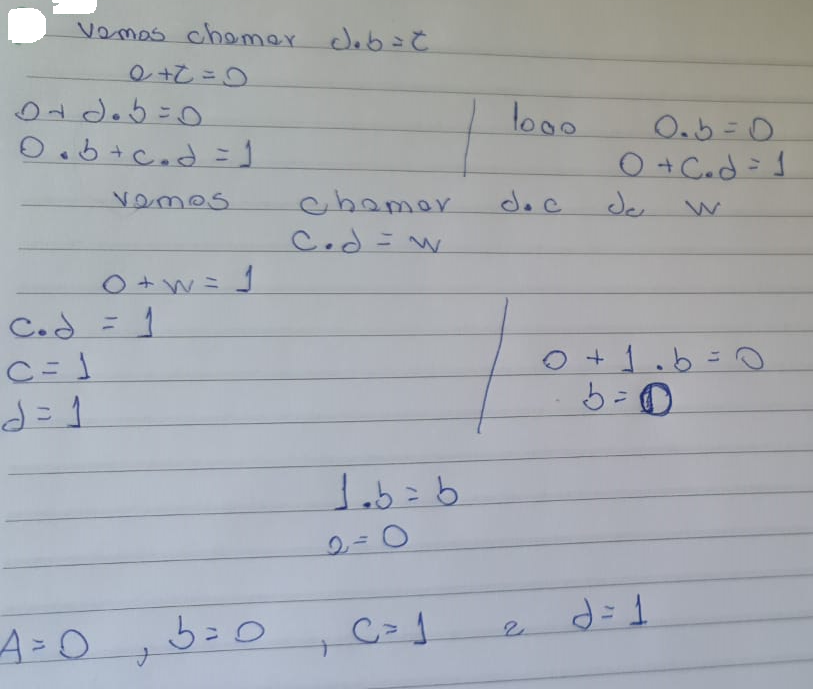 vamos chamar d.b=t
a+t=0
0+d.b=0
0.b+c.d=1
logo 0.b=0
0+c.d=1
vamos chamar d.c de w
c.d=w
0+w=1
c.d=1
c=1
d=1
0+1.b=0
b=0
1.b=b
a=0
A=0, b=0, c=1 e d=1